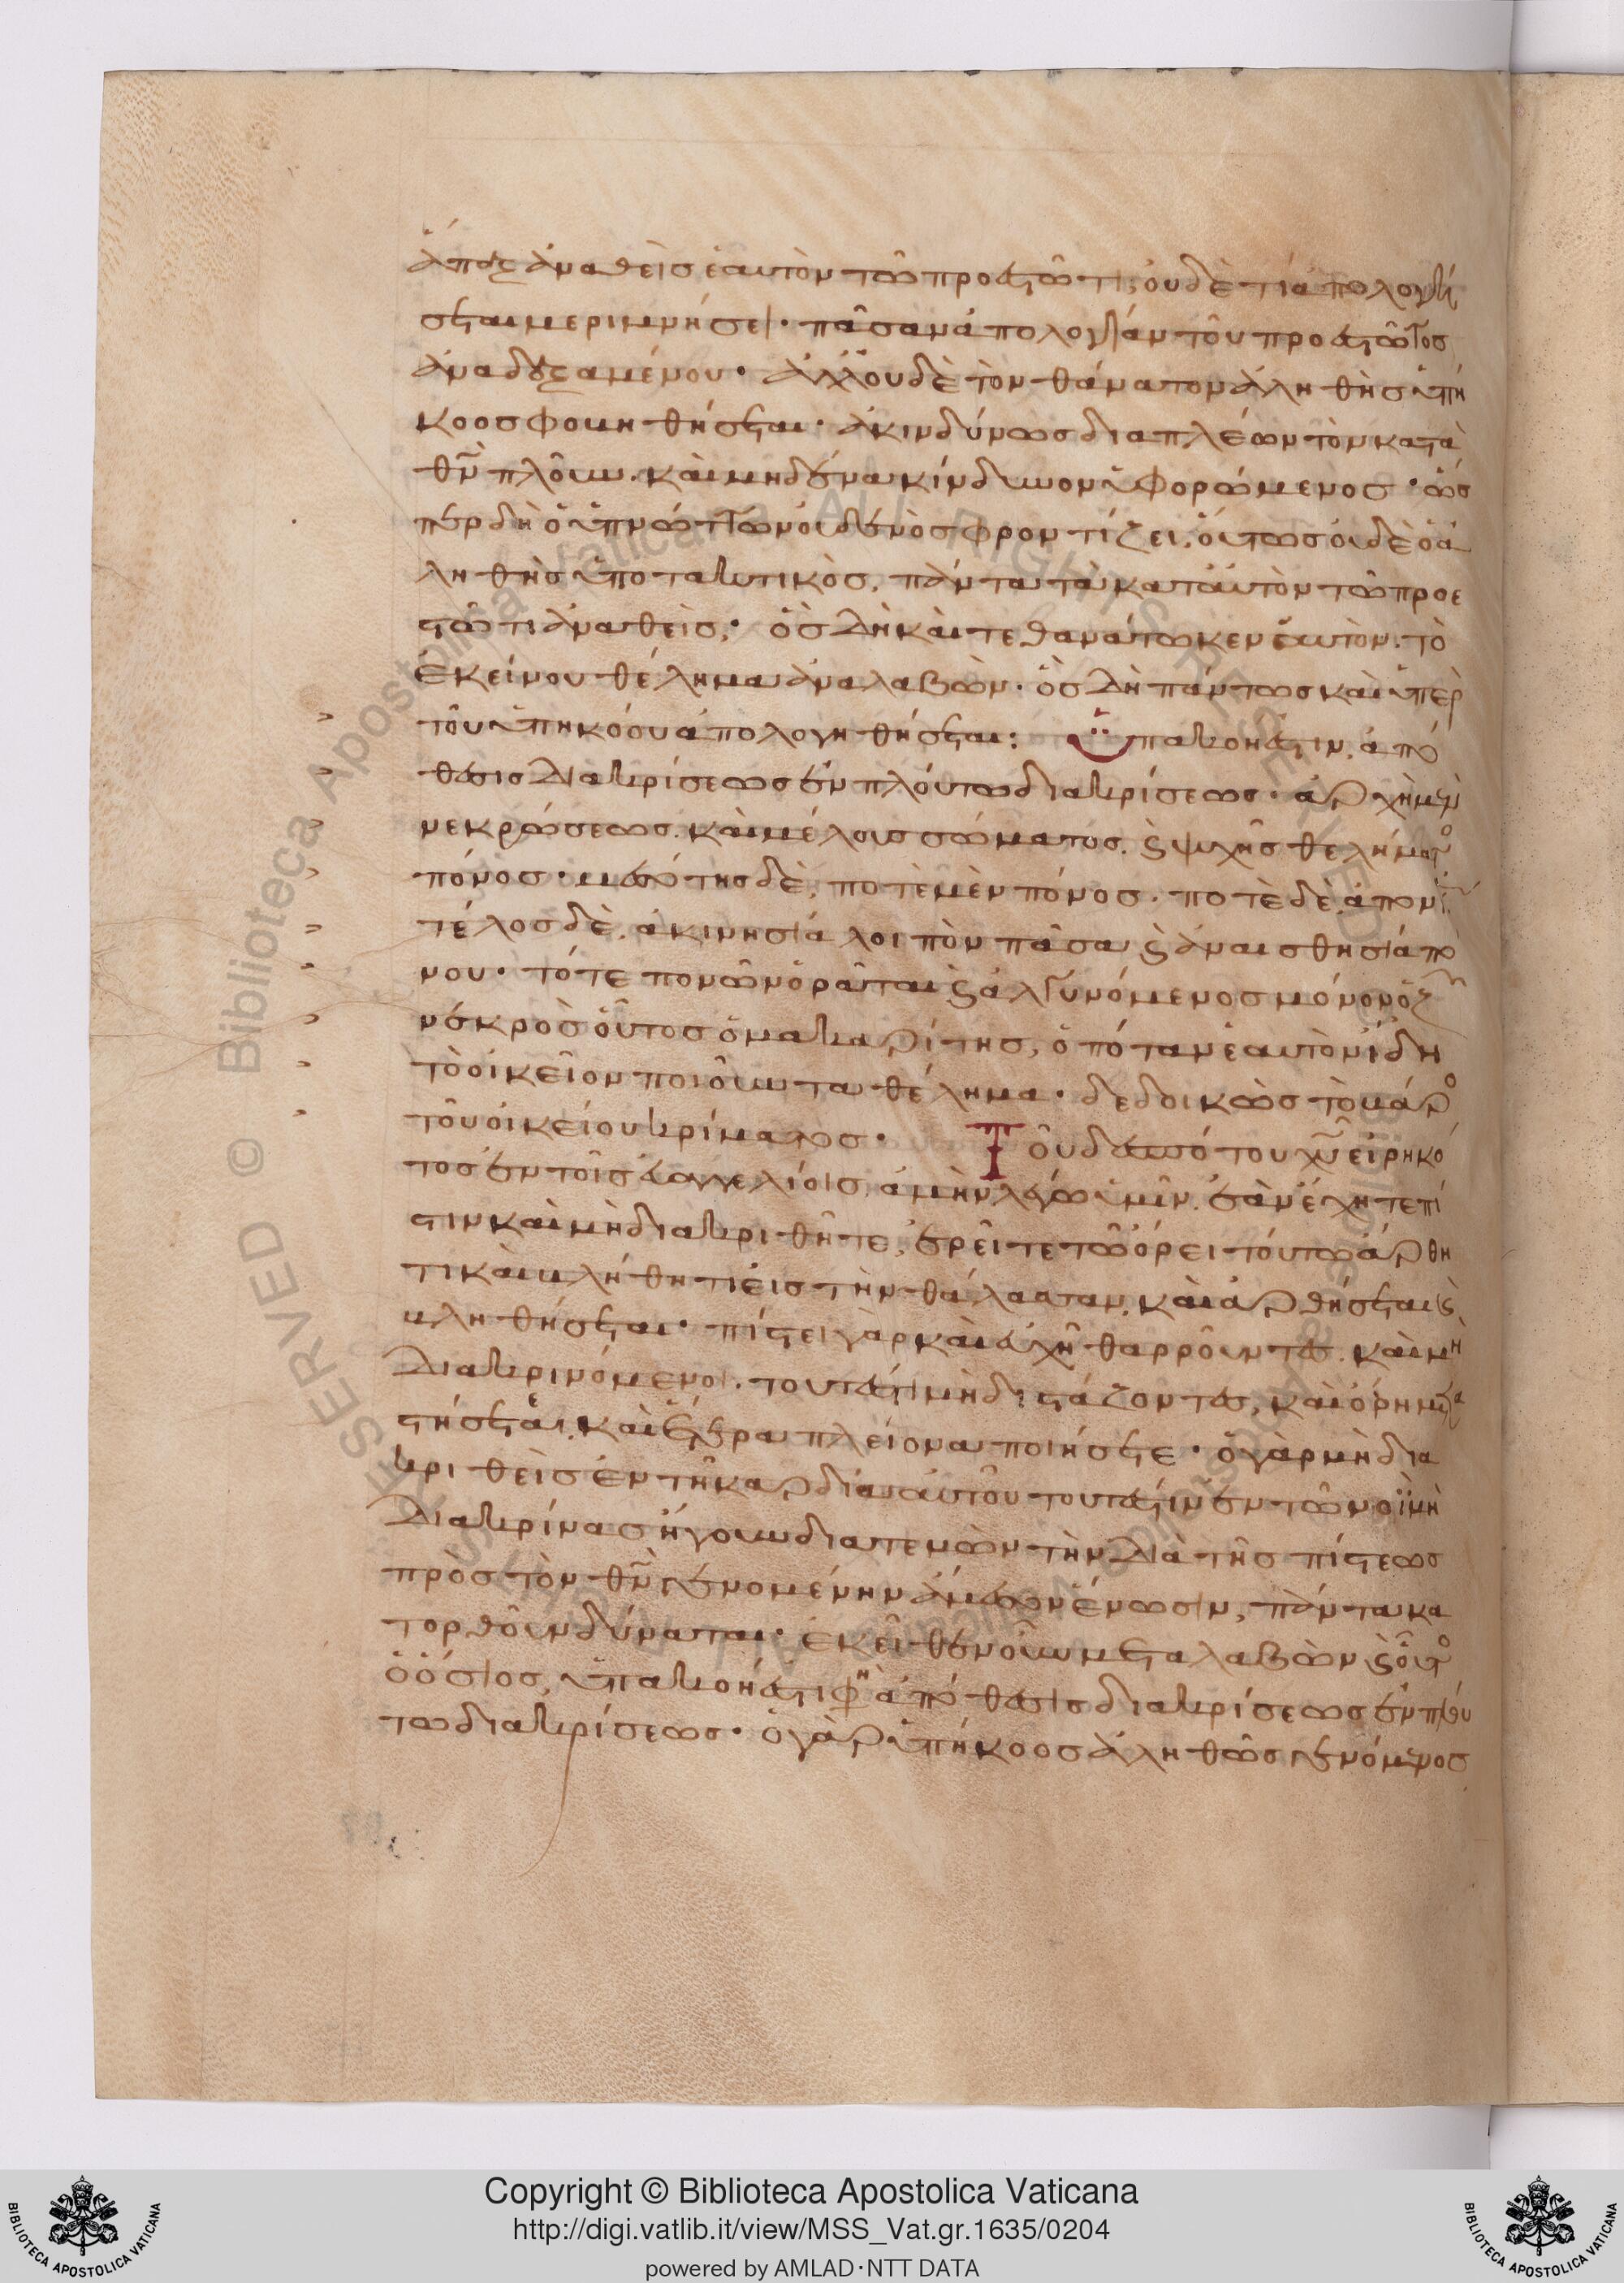 ἅπαξ ἀναθεὶς ἑαυτὸν τῶ προεστῶτι, οὐδὲ τί ἀπολογή
σεται μεριμνήσει· πᾶσαν ἀπολογίαν τοῦ προεστῶτος
ἀναδεξαμένου· ἀλλ' οὐδὲ τὸν θάνατον ἀληθὴς ὑπή
κοος φοβηθήσεται· ἀκινδύνως διαπλέων τὸν κατὰ
θν πλοῦν. καὶ μηδένα κίνδυνον ὑφορώμενος· ὡς
περ δὴ ὁ ὑπνώττων οὐδενὸς φροντίζει, οὕτως οὐδὲ ὁ ἀ
ληθὴς ὑποτακτικὸς, πάντα τὰ κατ' αὐτὸν τῶ προε
στῶτι ἀναθεὶς,· ὃς δὴ καὶ τεθανάτωκεν ἑαυτὸν. τὸ
ἐκείνου θέλημα ἀναλαβὼν· ὃς δὴ πάντως καὶ ὑπὲρ
τοῦ ὑπηκόου ἀπολογηθήσεται: Ὑπακοή ἐστιν, ἀπό
θεσις διακρίσεως ἐν πλούτω διακρίσεως· ἀρχὴ μὲν
νεκρώσεως. καὶ μέλους σώματος. ϗ ψυχῆς θελήματος
πόνος· μεσότης δὲ, ποτὲ μὲν πόνος. ποτὲ δὲ, ἀπονία
τέλος δὲ, ἀκινησία λοιπὸν πᾶσα ϗ ἀναισθησία πό
νου· τότε πονῶν ὁρᾶται ϗ ἀλγυνόμενος μόνον ὁ ζῶν
νεκρὸς οὗτος ὁ μακαρίτης, ὁπόταν ἑαυτὸν ἴδη
τὸ οἰκεῖον ποιοῦντα θέλημα· δεδοικὼς τὸ βάρος
τοῦ οἰκείου κρίματος· Τοῦ δεσπότου χυ εἰρηκό
τος ἐν τοῖς εὐαγγελίοις, ἀμὴν λέγω ὑμῖν. ἐὰν ἔχητε πί
στιν καὶ μὴ διακριθῆτε, ἐρεῖτε τῶ ὄρει τούτω ἄρθη
τι καὶ βλήθητι εἰς τὴν θάλασσαν, καὶ ἀρθήσεται ϗ
βληθήσεται· πίστει γὰρ καὶ εὐχῆ θαρροῦντες. καὶ μὴ
διακρινόμενοι. τουτέστι μὴ διστάζοντες, καὶ ὄρη μετα
στήσεται, καὶ ἕτερα πλείονα ποιήσετε· ὁ γὰρ μὴ δια
κριθεὶς ἐν τῆ καρδία αὐτοῦ τουτέστιν ἐν τῶ νοῒ μὴ
διακρίνας ἤγουν διατεμὼν τὴν διὰ τῆς πίστεως
πρὸς τὸν θν γενομένην ἀμφοῖν ἕνωσιν, πάντα κα
τορθοῦν δύναται· ἐκεῖθεν οὖν μεταλαβὼν ϗ οὗτος
ὁ ὅσιος, ὑπακοή ἐστι φη ἀπόθεσις διακρίσεως ἐν πλού
τω διακρίσεως· ὁ γὰρ ὑπήκοος ἀληθῶς γενόμενος
Copyright © Biblioteca Apostolica Vaticana
http://digi.vatlib.it/view/MSS_Vat.gr.1635/0204
powered by AMLAD·NTT DATA